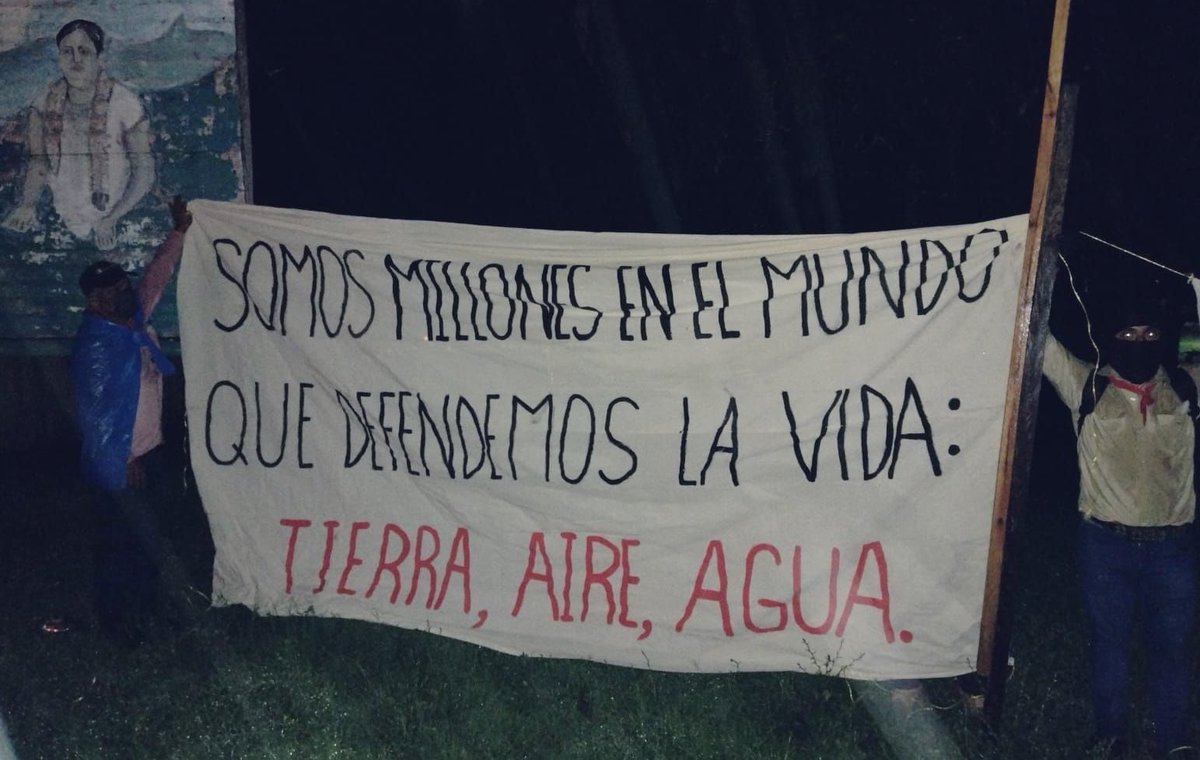 SOMOS MILLONES EN EL MUNDO
QUE DEFENDEMOS LA VIDA:
TIERRA, AIRE, AGUA.